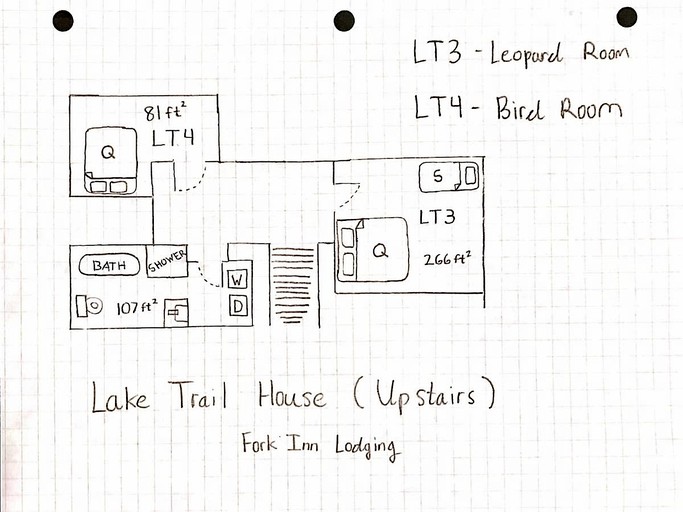 LT3 - Leopard Room
LT4 - Bird Room
81 ft²
LT4
Q
S
LT3
Q
266 ft²
BATH
SHOWER
W
D
107 ft²
Lake Trail House (Upstairs)
Fork Inn Lodging